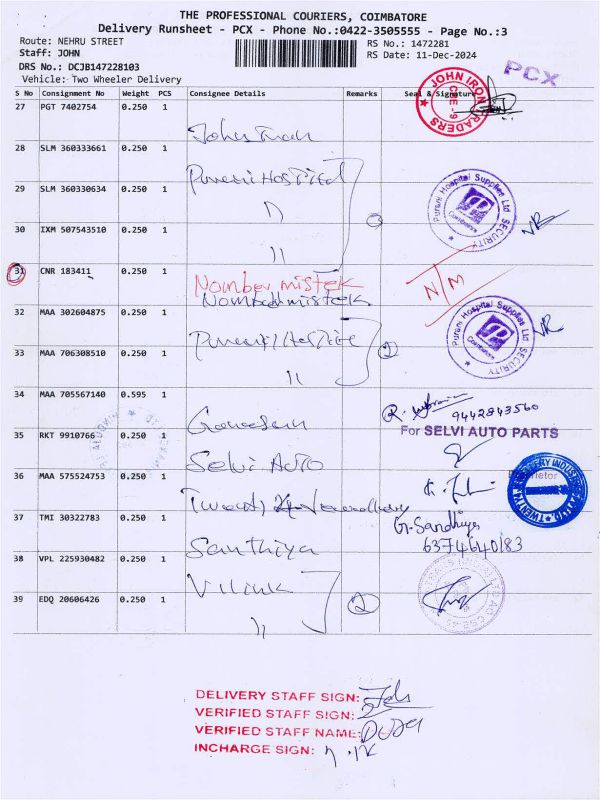 THE PROFESSIONAL COURIERS, COIMBATORE
Delivery Runsheet - PCX - Phone No.:0422-3505555 - Page No.:3
Route: NEHRU STREET
RS No.: 1472281
Staff: JOHN
RS Date: 11-Dec-2024
DRS No.: DCJB147228103
PCX
Vehicle: Two Wheeler Delivery
S No Consignment No Weight PCS Consignee Details Remarks Seal & Signature
27 PGT 7402754 0.250 1
JOHN IRON TRADERS CBE-9
28 SLM 360333661 0.250 1 Purani Hospital
29 SLM 360330634 0.250 1 "
Purani Hospital Supplies Ltd SECURITY Coimbatore
30 IXM 507543510 0.250 1 "
31 CNR 183411 0.250 1 Nomber mistek N/M
Nomber mistek
32 MAA 302604875 0.250 1 Purani Hospital 2
Purani Hospital Supplies Ltd SECURITY Coimbatore
33 MAA 706308510 0.250 1 "
34 MAA 705567140 0.595 1 Ganesan
9442843560
For SELVI AUTO PARTS
35 RKT 9910766 0.250 1 Selvi Auto
Proprietor
36 MAA 575524753 0.250 1
37 TMI 30322783 0.250 1 Santhiya G. Sandhiya
6374640183
38 VPL 225930482 0.250 1
39 EDQ 20606426 0.250 1 " 2
DELIVERY STAFF SIGN:
VERIFIED STAFF SIGN:
VERIFIED STAFF NAME:
INCHARGE SIGN: